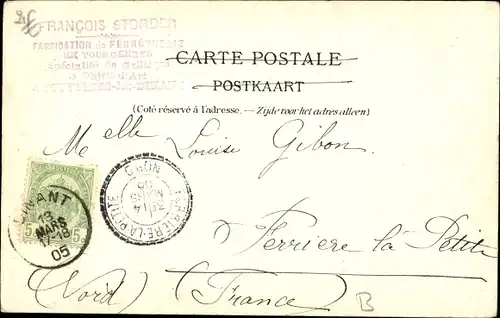 FRANÇOIS STORDER
FABRICATION de FERRONNERIE
EN TOUS GENRES
Spécialité de
& Objets d'Art
CARTE POSTALE
POSTKAART
(Coté réservé à l'adresse. — Zijde voor het adres alleen)
Melle Louise Gibon
DINANT
13
MARS
17-18
05
5
FERRIERE-LA-PETITE
NORD
14
05
Ferriere la Petite
(Nord) (France)
B